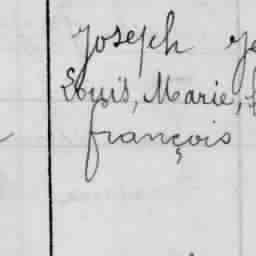 Joseph Je
Louis, Marie,
françois